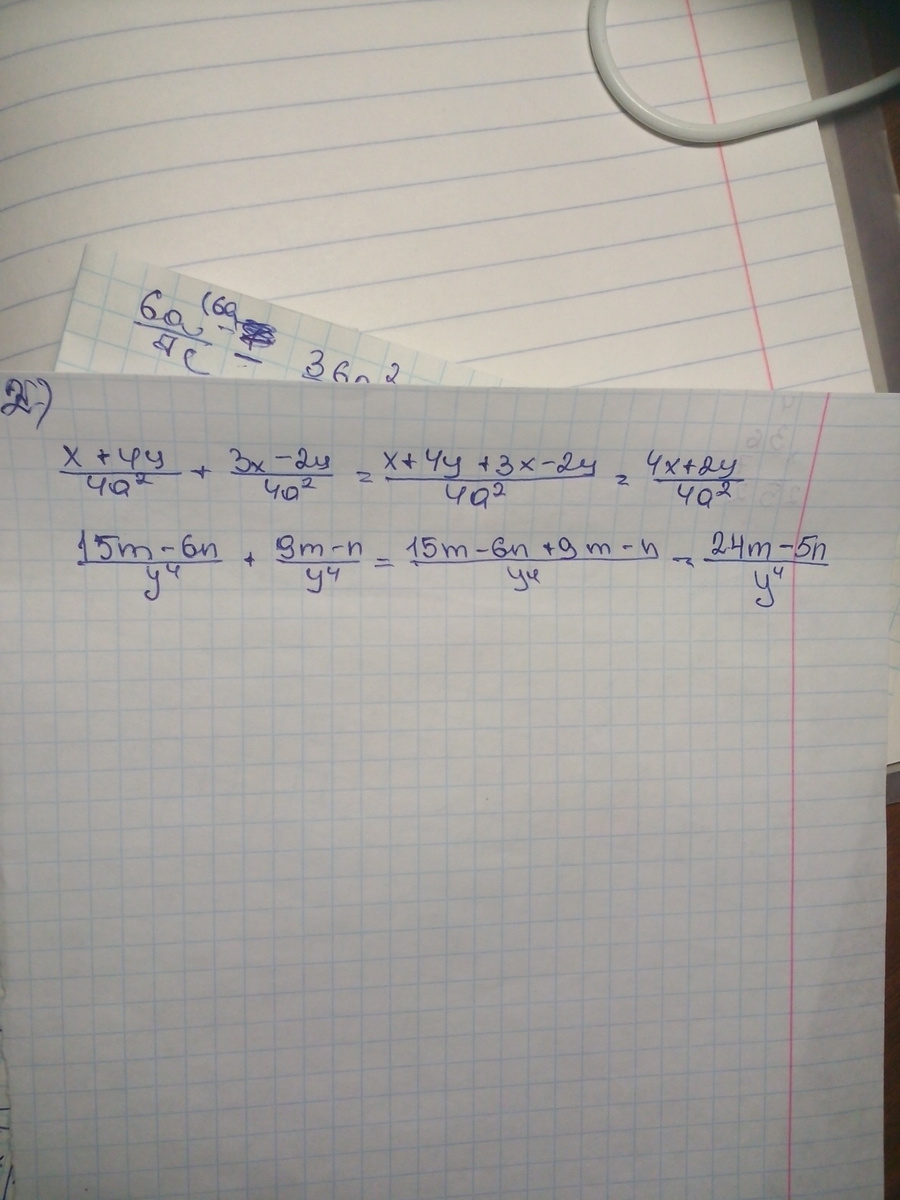 6a (6a
7c =
36a²
2)
(x+4y)/(4a²) + (3x-2y)/(4a²) = (x+4y+3x-2y)/(4a²) = (4x+2y)/(4a²)
(15m-6n)/(y⁴) + (9m-n)/(y⁴) = (15m-6n+9m-n)/(y⁴) = (24m-5n)/(y⁴)